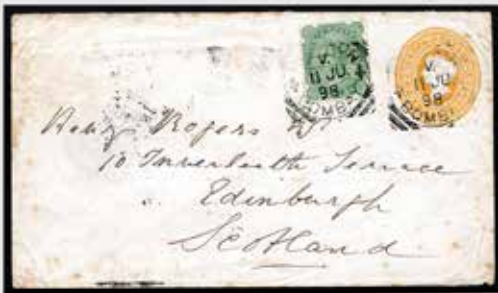 V.
11 JU
98
BOMB
V.
11 JU
98
BOMB
Henry Rogers
10 Inverleith Terrace
Edinburgh
Scotland